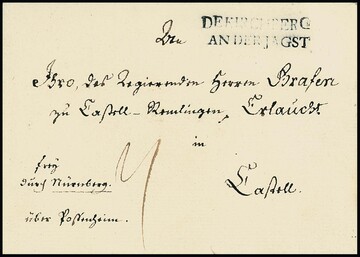 DE KIRCHBERG
AN DER JAGST
An
Ihro, des Regierenden Herrn Grafen
zu Castell-Remlingen, Erlaucht
in
Castell.
frey
durch Nürnberg.
über Possenheim.